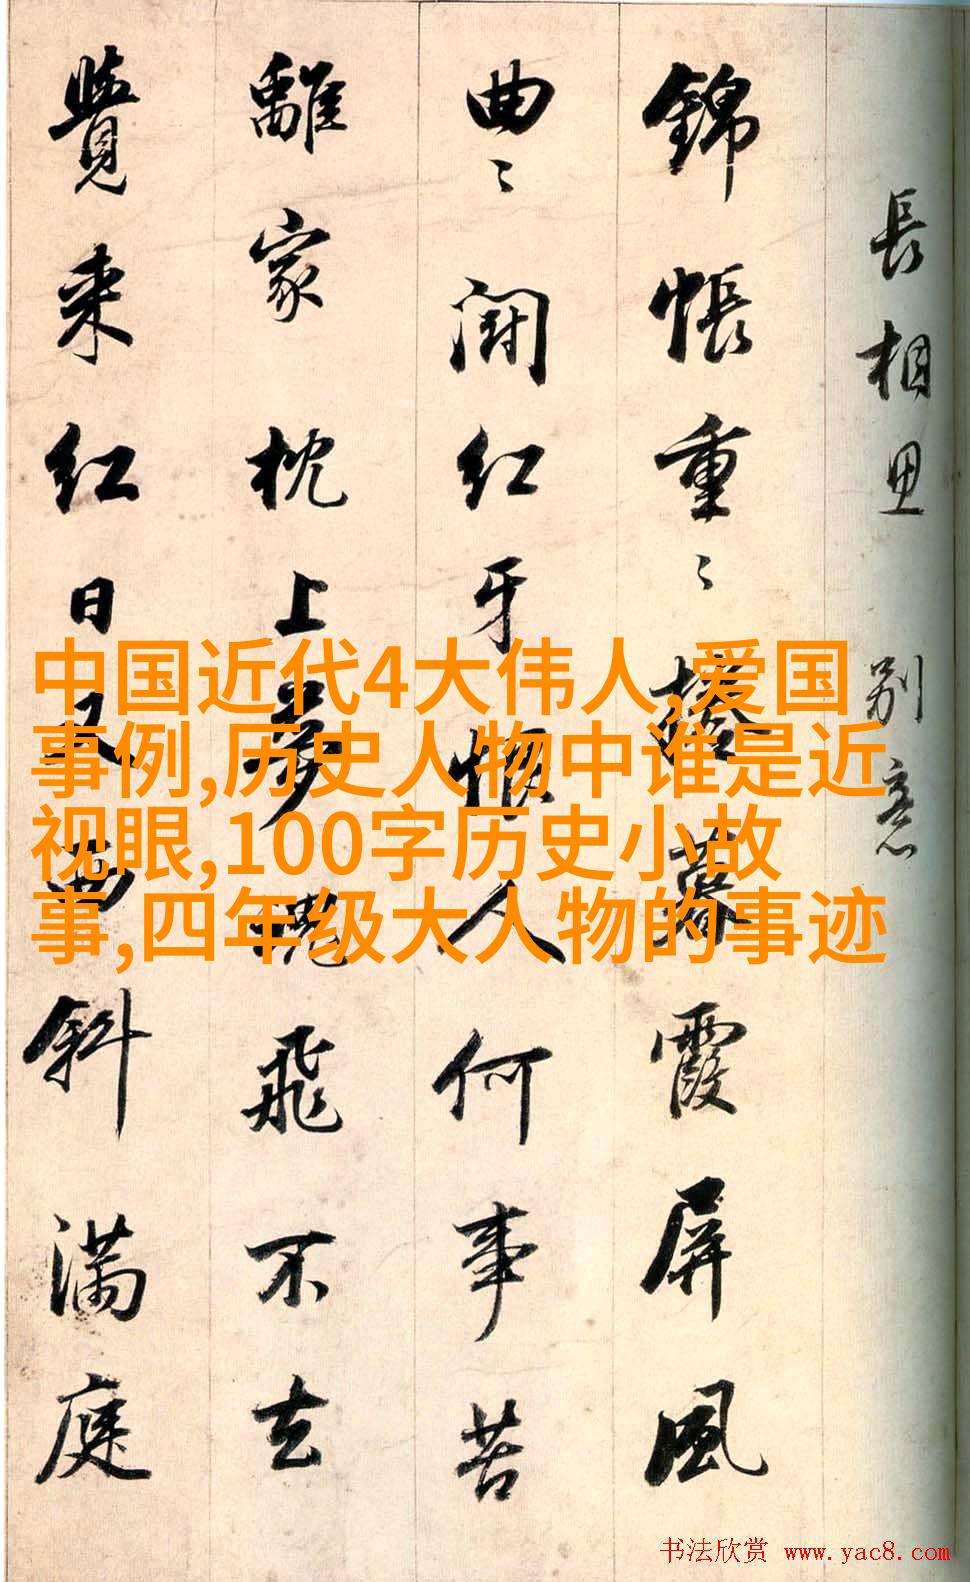 長相思 別意
錦帳重〻捲暮霞屏風
曲〻鬪红牙恨人何事苦
離家枕上夢魂飛不去
覺来红日又西斜满庭
中国近代4大伟人,爱国
事例,历史人物中谁是近
视眼,100字历史小故
事,四年级大人物的事迹
书法欣赏 www.yac8.com